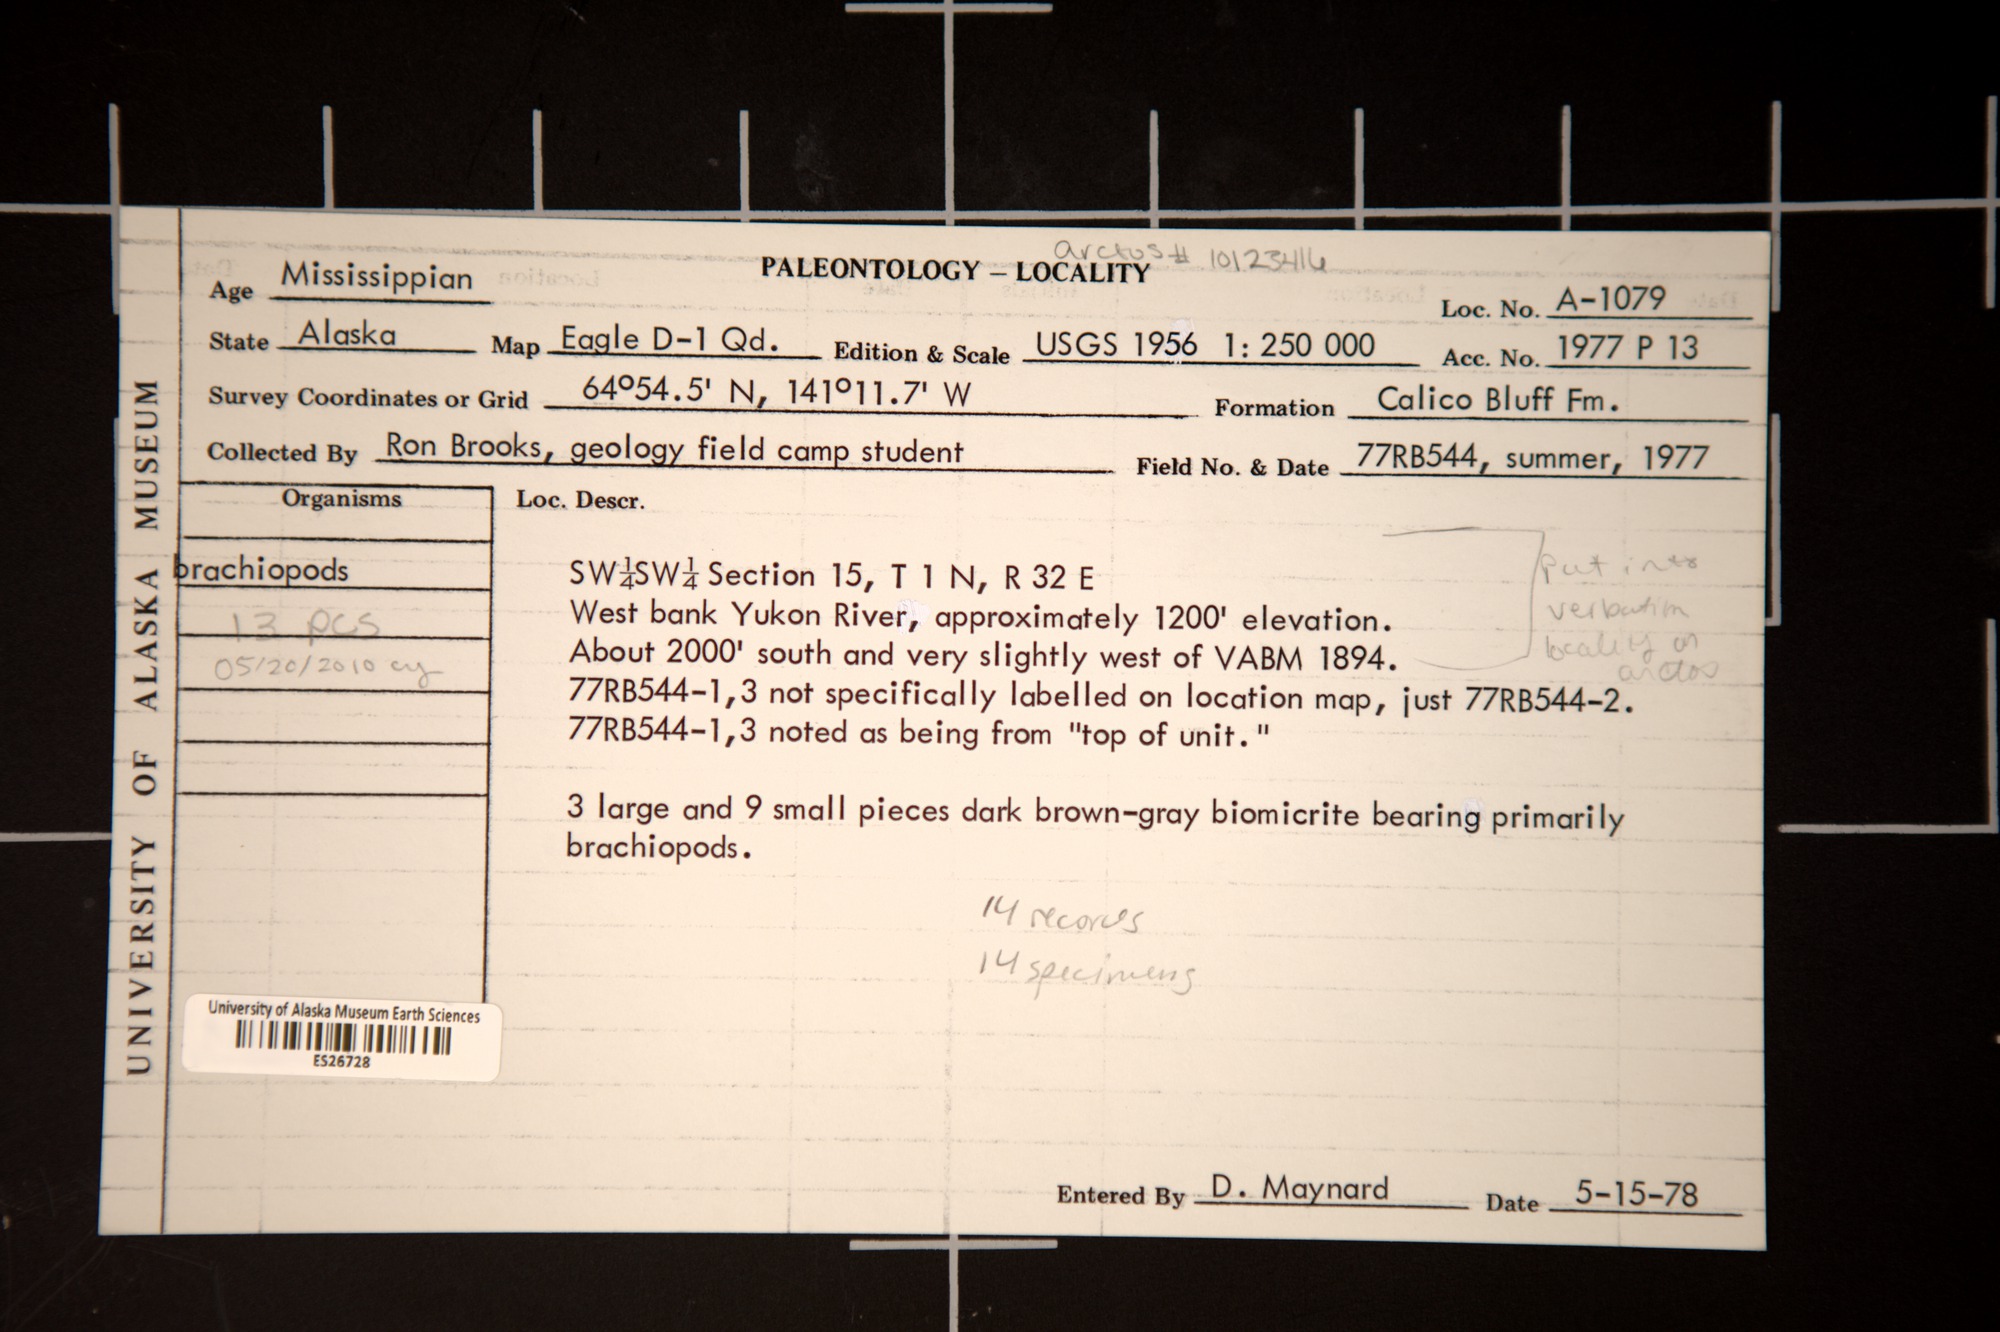 arctos# 10123416
PALEONTOLOGY – LOCALITY
Age Mississippian
Loc. No. A-1079
State Alaska Map Eagle D-1 Qd. Edition & Scale USGS 1956 1: 250 000 Acc. No. 1977 P 13
Survey Coordinates or Grid 64°54.5' N, 141°11.7' W Formation Calico Bluff Fm.
Collected By Ron Brooks, geology field camp student Field No. & Date 77RB544, summer, 1977
Organisms
brachiopods
13 pcs
05/20/2010 cy
Loc. Descr.
SW¼SW¼ Section 15, T 1 N, R 32 E
West bank Yukon River, approximately 1200' elevation.
About 2000' south and very slightly west of VABM 1894.
77RB544-1,3 not specifically labelled on location map, just 77RB544-2.
77RB544-1,3 noted as being from "top of unit."
put into
verbatim
locality on
arctos
3 large and 9 small pieces dark brown-gray biomicrite bearing primarily
brachiopods.
14 records
14 specimens
University of Alaska Museum Earth Sciences
ES26728
Entered By D. Maynard Date 5-15-78
UNIVERSITY OF ALASKA MUSEUM